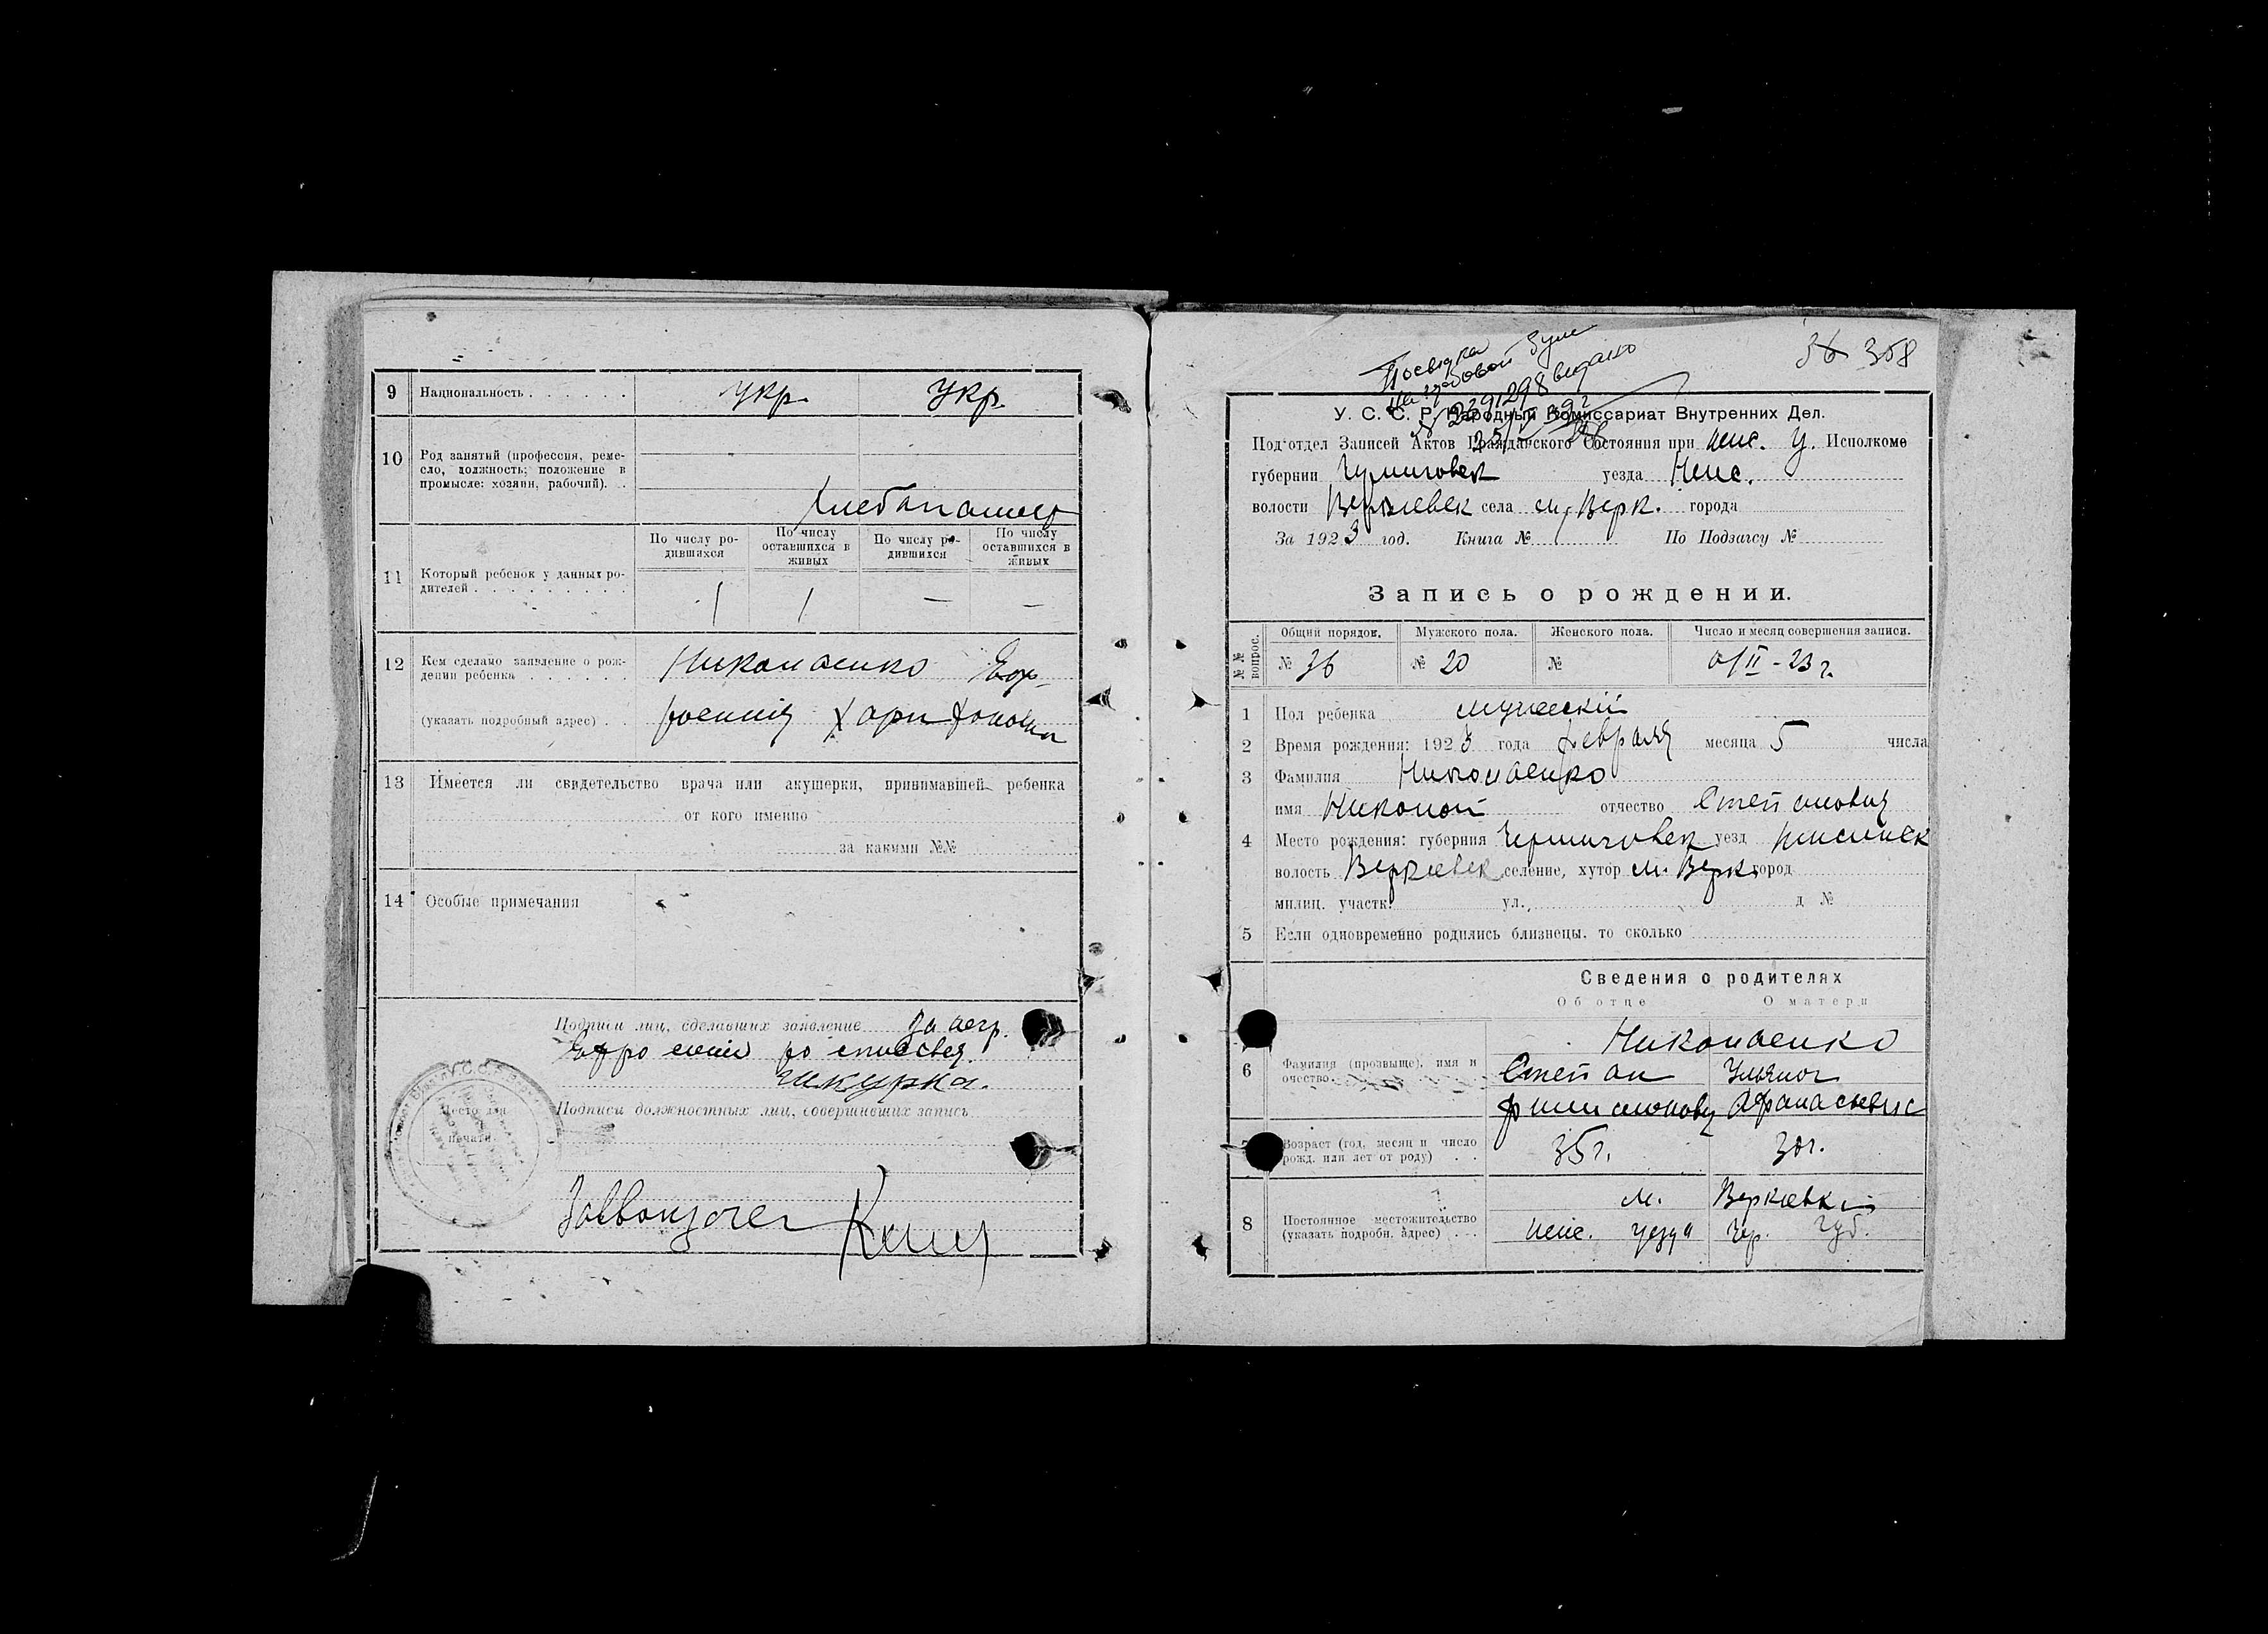 9 Национальность . . . . . . . укр. укр.
10 Род занятий (профессия, реме-
сло, должность; положение в
промысле: хозяин, рабочий). .
хлебапашец
По числу ро-
дившихся
По числу
оставшихся в
живых
По числу ро-
дившихся
По числу
оставшихся в
живых
11 Который ребенок у данных ро-
дителей . . . . . . . . . 1 1 — —
12 Кем сделано заявление о рож-
дении ребенка . . . . . . Николаенко Евф-
(указать подробный адрес) . . росиния Харитоновна
13 Имеется ли свидетельство врача или акушерки, принимавшей ребенка
от кого именно
за какими №№
14 Особые примечания
Подписи лиц, сделавших заявление за негр.
шкурка.
Подписи должностных лиц, совершивших запись
Место для
печати
Завподзаг
36 358
Посвідка
298 видано
У. С. С. Р. Народный Комиссариат Внутренних Дел.
Под‘отдел Записей Актов Гражданского Состояния при Неж. У. Исполкоме
губернии Черниговск уезда Неж.
волости Веркиевск села м. Верк. города
За 1923 год. Книга № По Подзагсу №
Запись о рождении.
№ № вопрос. Общий порядок. Мужского пола. Женского пола. Число и месяц совершения записи.
№ 36 № 20 № 6/II - 23 г.
1 Пол ребенка мужеский
2 Время рождения: 1923 года февраля месяца 5 числа
3 Фамилия Николаенко
имя Николай отчество Степанович
4 Место рождения: губерния Черниговск уезд Нежинск
волость Веркиевск селение, хутор м. Верк. город
милиц. участк. ул. д №
5 Если одновременно родились близнецы, то сколько
Сведения о родителях
Об отце О матери
Николаенко
6 Фамилия (прозвище), имя и
очество. Степан Ульяна
Филимонович Афанасьевна
7 Возраст (год, месяц и число
рожд. или лет от роду) . . 35 г. 30 г.
м. Веркиевки
8 Постоянное местожительство
(указать подробн. адрес) . . . Неж. уезда Чер. Губ.